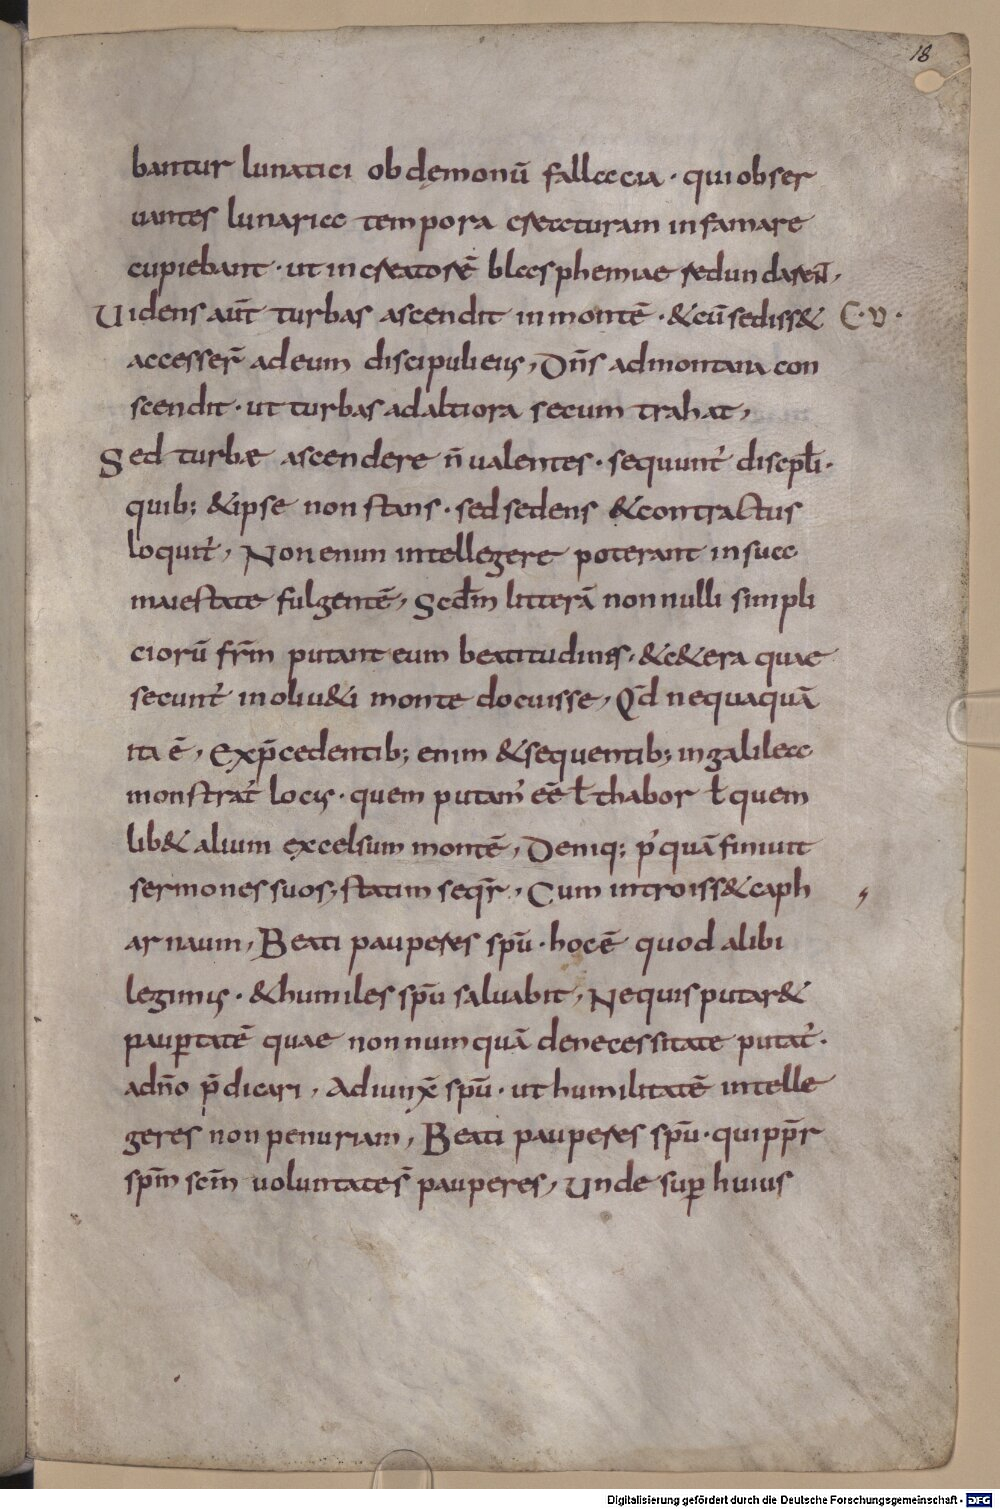 18
bantur lunatici ob demonū fallacia · qui obser
uantes lunaria tempora creaturam infamare
cupiebant · ut in creatorē blasphemiae redundareñ,
Uidens aūt turbas ascendit in montē · & cū sediss& C·V·
accesser̄ ad eum discipuli eius, Dn̄s ad montana con
scendit · ut turbas ad altiora secum trahat,
Sed turbae ascendere n̄ ualentes · sequunt᾽ discipl̄i ·
quib; & ipse non stans · sed sedens & contractus
loquit᾽, Non enim intellegere poterant in sua
maiestate fulgentē, Scd̄m litterā nonnulli simpli
ciorū fr̄m putant eum beatitudines · & c&era quae
secunt᾽ in oliu&i monte docuisse, Qd̄ nequaquā
ita ē, Ex p̄cedentib; enim & sequentib; in galilea
monstrat᾽ locus · quem putam᾽ eē ł thabor ł quem
lib& alium excelsum montē, Deniq; p᾽quā finiuit
sermones suos, statim seqr̄, Cum introiss& caph
arnaum, Beati pauperes spū · hoc ē quod alibi
legimus · & humiles spū saluabit, Ne quis putar&
paup̄tatē quae nonnumquā de necessitate putat᾽ ·
a dn̄o p̄dicari, Adiunx̄ spū · ut humilitatē intelle
geres non penuriam, Beati pauperes spū · qui pp̄r
spm̄ scm̄ uoluntates̄ pauperes, Unde sup̄ huius
Digitalisierung gefördert durch die Deutsche Forschungsgemeinschaft - DFG